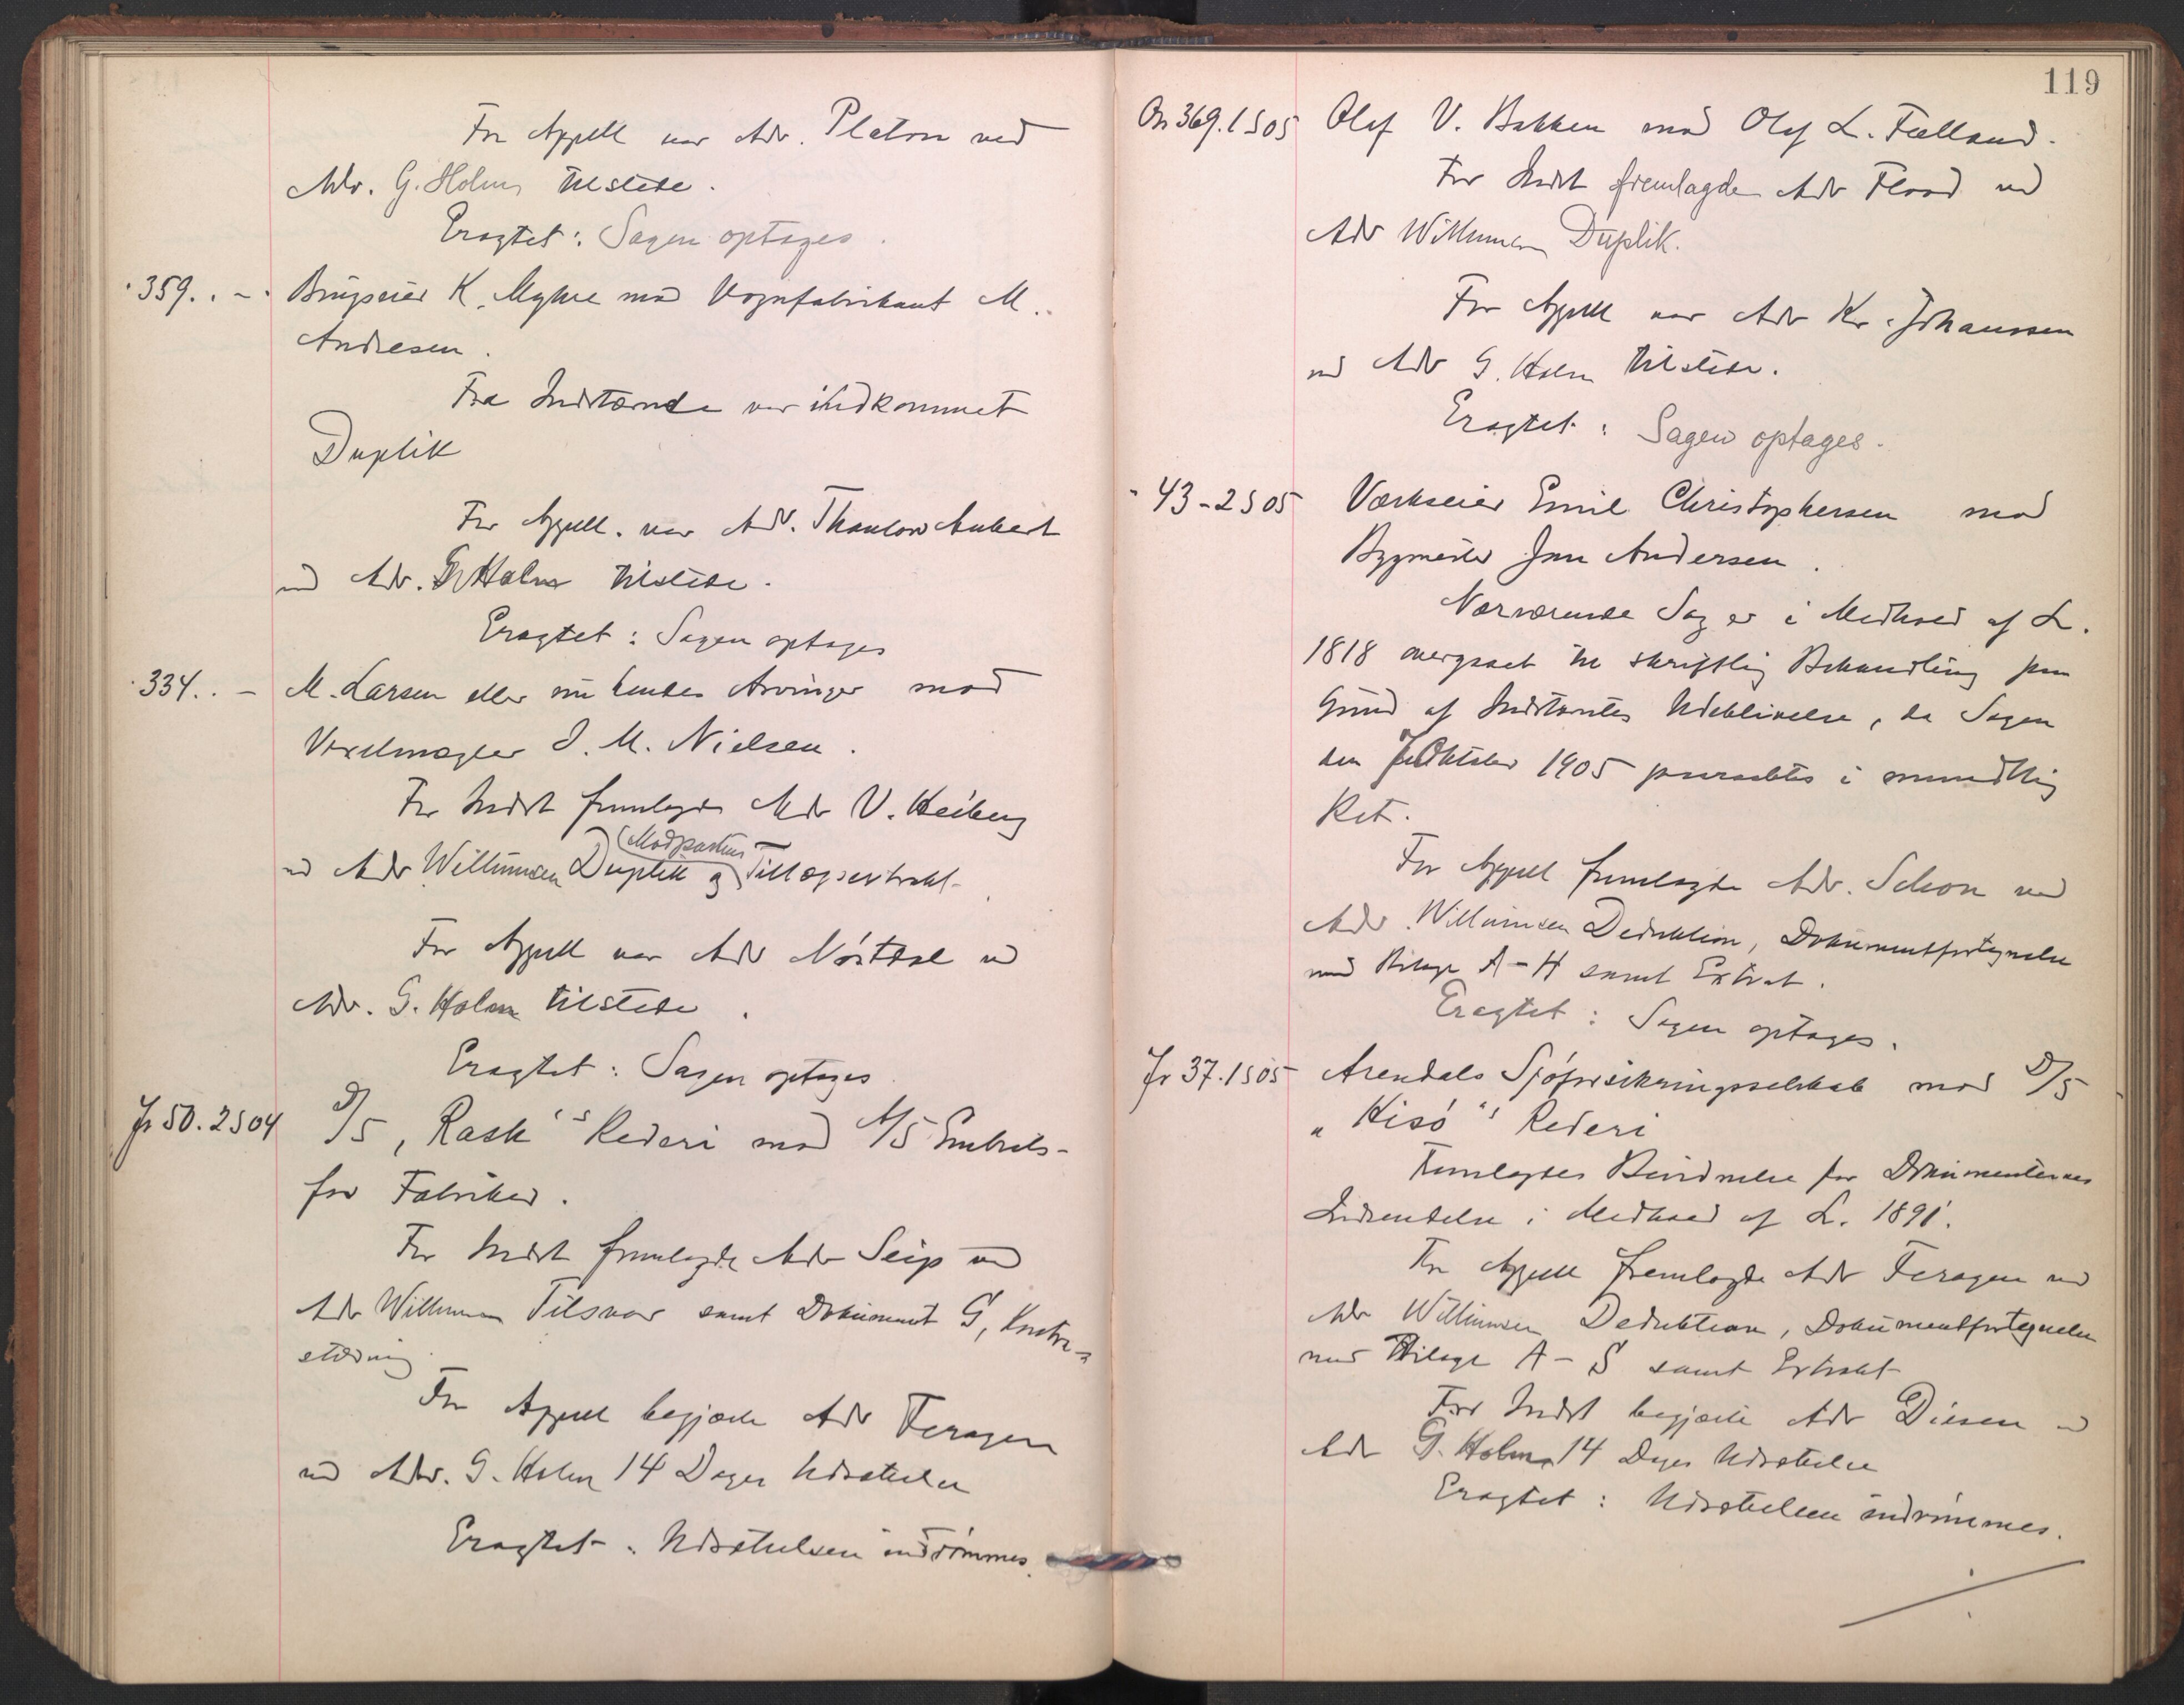 For Appell var Adv. Platou ved
Adv. G. Holm tilstede.
Eragtet: Sagen optages.
" 359. . - . Brugseier K. Myhre mod Vognfabrikant M.
Andresen.
Fra Indstævnte var indkommet
Duplik
For Appell. var Adv. Thaulow Aubert
ved Adv. G Holm tilstede.
Eragtet: Sagen optages
" 334. . - M. Larsen eller nu hendes Arvinger mod
Vexelmægler J. M. Nielsen.
For Indst fremlagde Adv V. Heiberg
(Modpartens
ved Adv Willumsen Duplik og Tillægsextrakt.
For Appell var Adv Nørstdal ved
Adv. G. Holm tilstede.
Eragtet: Sagen optages
Fr 50. 2 S 04 D/S „Rask"s Rederi mod A/S Embrets-
fos Fabriker.
For Indst fremlagde Adv Seip ved
Adv Willumsen Tilsvar samt Dokument G, Kontra-
stævning
For Appell begjærte Adv Feragen
ved Adv. G. Holm 14 Dages Udsættelse
Eragtet: Udsættelsen indrømmes.
119
On 369. 1 S 05 Olaf V. Bakken mod Olaf L. Fælland.
For Indst fremlagde Adv Flood ved
Adv Willumsen Duplik.
For Appell var Adv Kr. Johanssen
ved Adv G. Holm tilstede.
Eragtet: Sagen optages.
" 43 - 2 S 05 Værkseier Emil Christophersen mod
Bygmester Jens Andersen.
Nærværende Sag er i Medhold af L.
1818 overgaaet til skriftlig Behandling paa
Grund af Indstævntes Udeblivelse, da Sagen
den Oktober 1905 paaraabtes i mundtlig
Ret.
For Appell fremlagde Adv. Schou ved
Adv. Willumsen Deduktion, Dokumentfortegnelse
med Bilage A - H samt Extrat.
Eragtet: Sagen optages.
Fr 37. 1 S 05 Arendals Sjøforsikringsselskab mod D/S
„Kisø"s Rederi
Fremlagdes Bevidnelse for Dokumenternes
Indsendelse i Medhold af L. 1891.
For Appell fremlagde Adv Feragen ved
Adv Willumsen Deduktion, Dokumentfortegnelse
med Bilage A - S samt Extrakt
For Indst begjærte Adv Diesen ved
Adv G. Holm 14 Dages Udsættelse
Eragtet: Udsættelsen indrømmes.